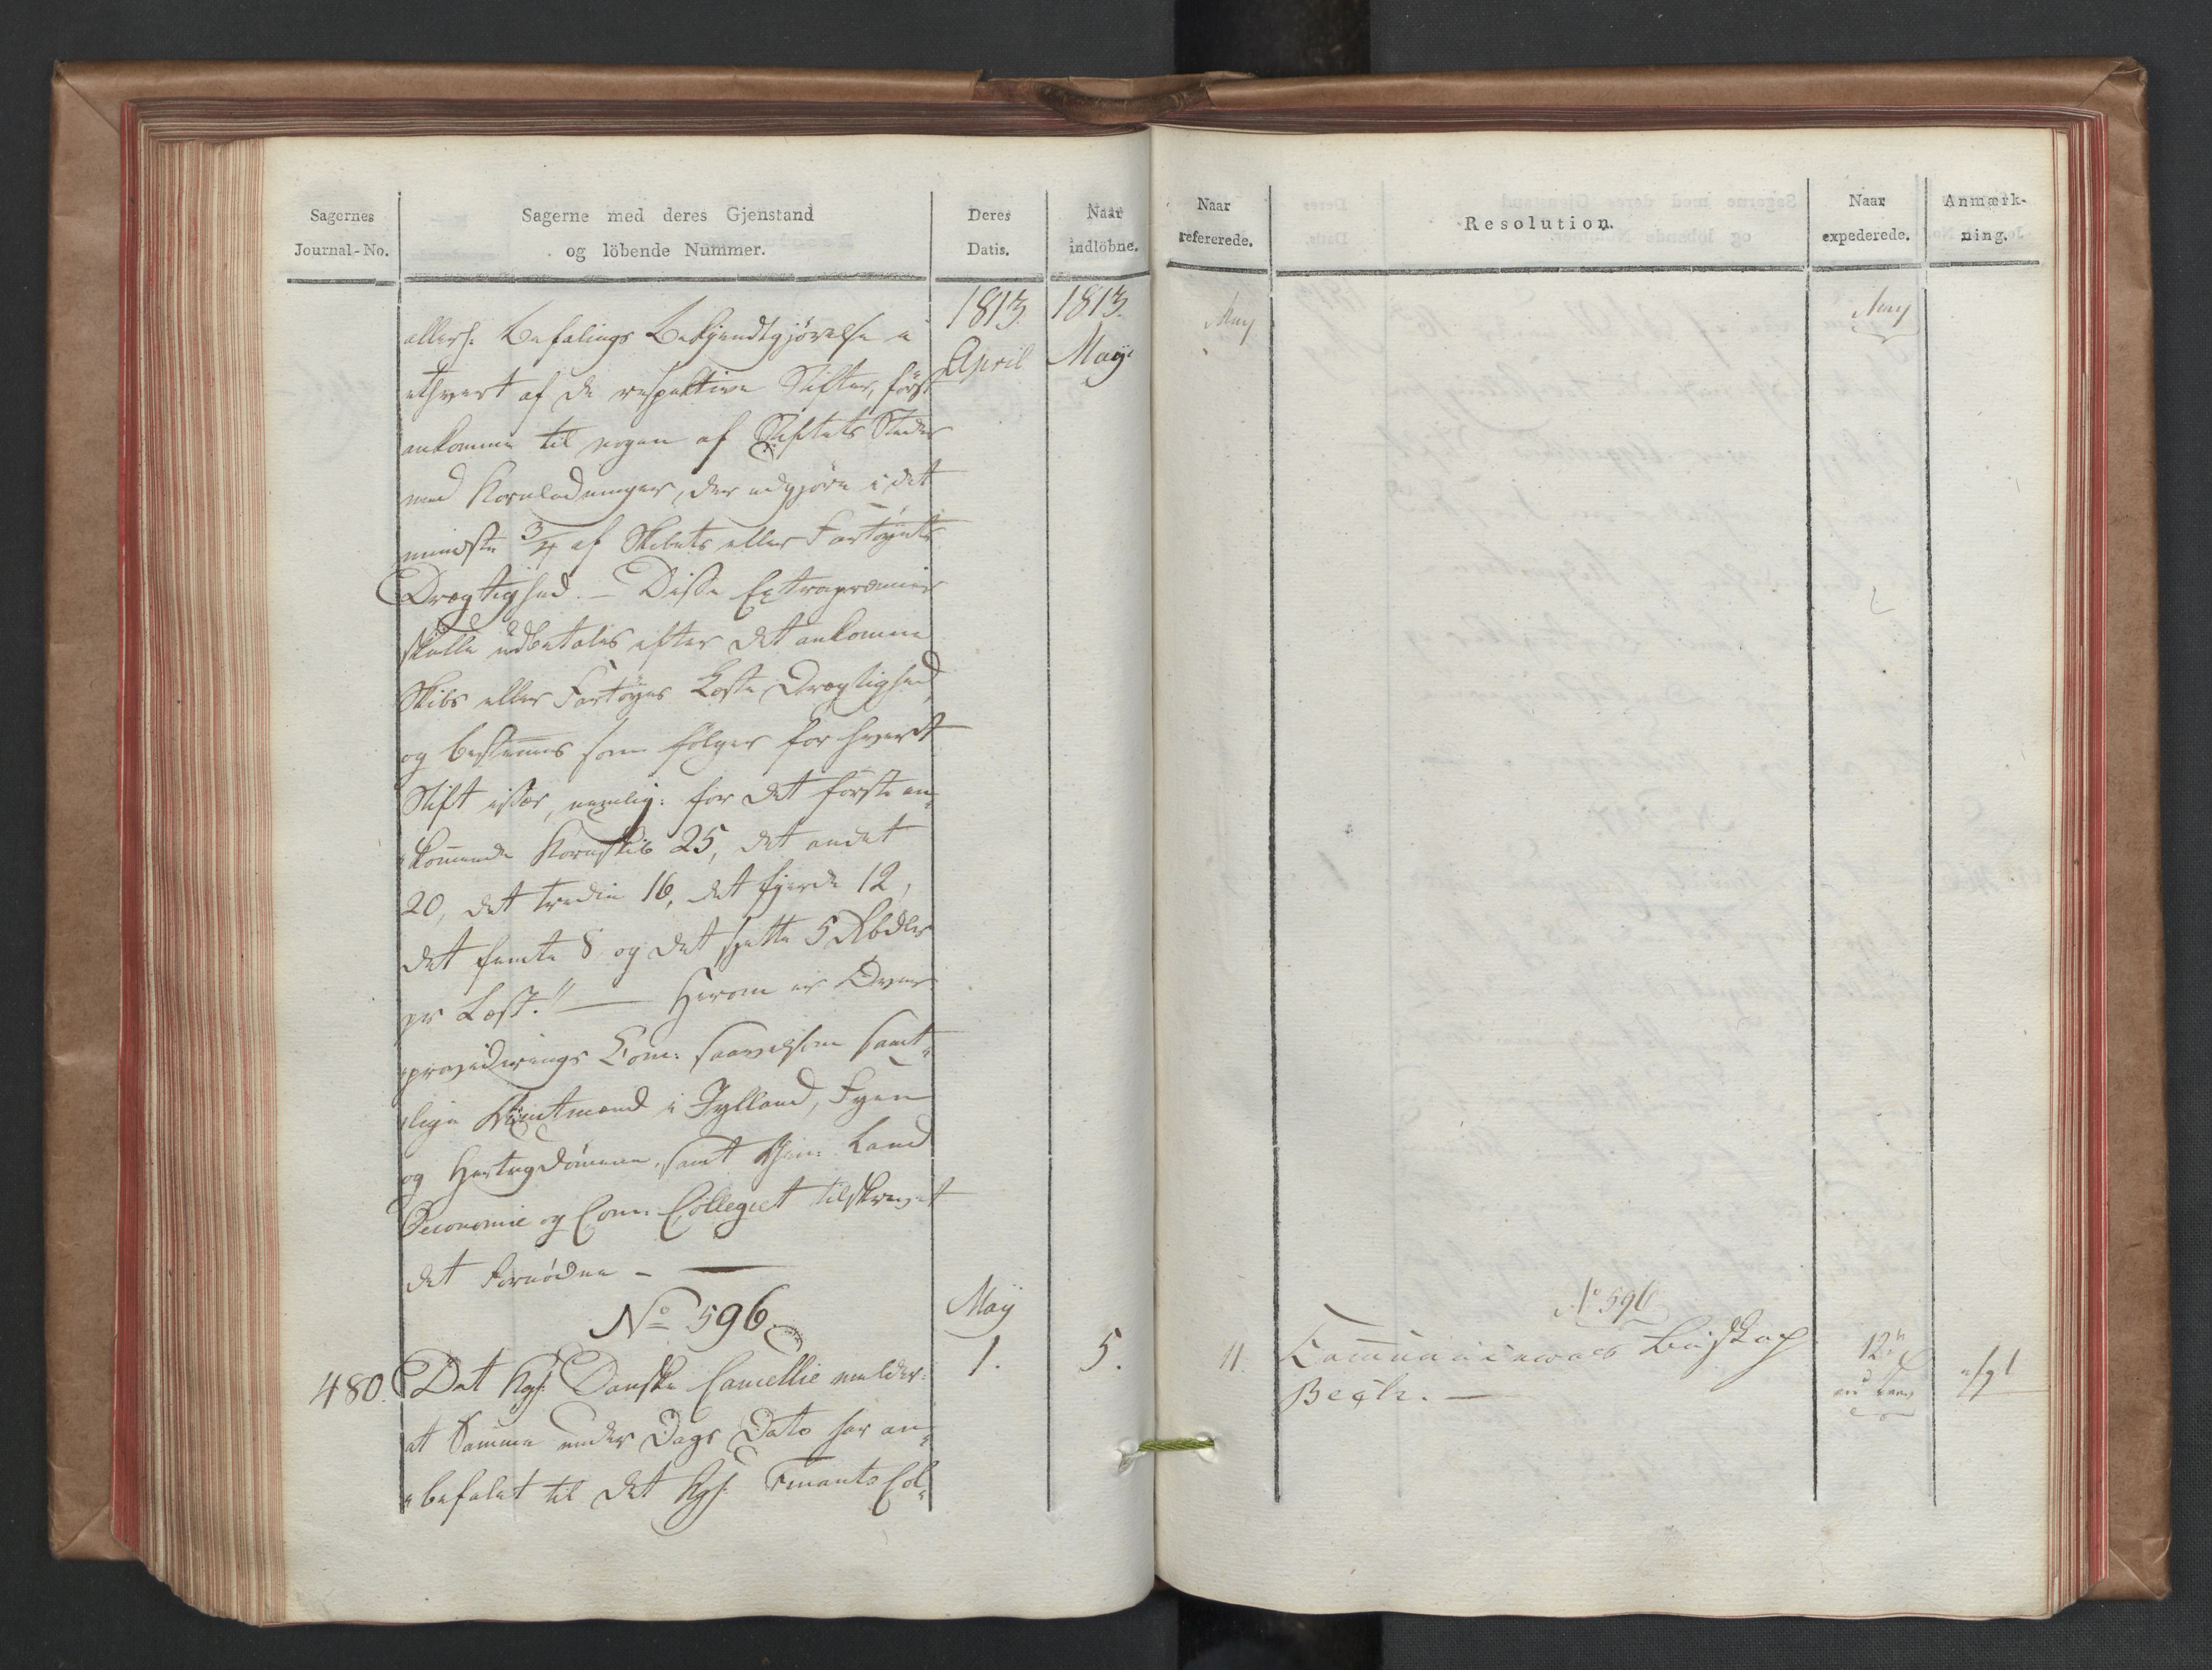 Sagernes
Journal-No.
Sagerne med deres Gjenstand
og löbende Nummer.
Deres
Datis.
Naar
indlöbne.
1813.
April
1813.
May
allerh: Befalings Bekjendtgjørelse i
ethvert af de respektive Stifter, først
ankomme til nogen af Stiftets Steder
med Kornladninger, der udgjøre i det
mindste 3/4 af Skibets eller Fartøyets
Drægtighed. — Disse Extrapræmier
skulle udbetales efter det ankomne
Skibs eller Fartøyes Læste Drægtighed,
og bestemmes som følger for hvert
Stift især, nemlig: for det første an-
kommende Kornskib 25, det andet
20, det tredie 16, det fjerde 12,
det femte 8 og det sjette 5 Rbdlr
pr Læst." — Herom er Over
providerings Com: saavelsom samt-
lige Amtmænd i Jylland, Fyen
og Hertugdømmene, samt Gen: Land
Oeconomie og Com: Collegiet tilskrevet
det fornødne —
No 596.
May
480.
Det Kgl: Danske Cancellie melder:
1.
5.
at Samme under Dags Dato har an-
befalet til det Kgl: Finants Col-
Naar
refererede.
Resolution.
Naar
expederede.
Anmærk-
ning.
May
May
No 596
11.
Communiceres Biskop
Bech. —
12